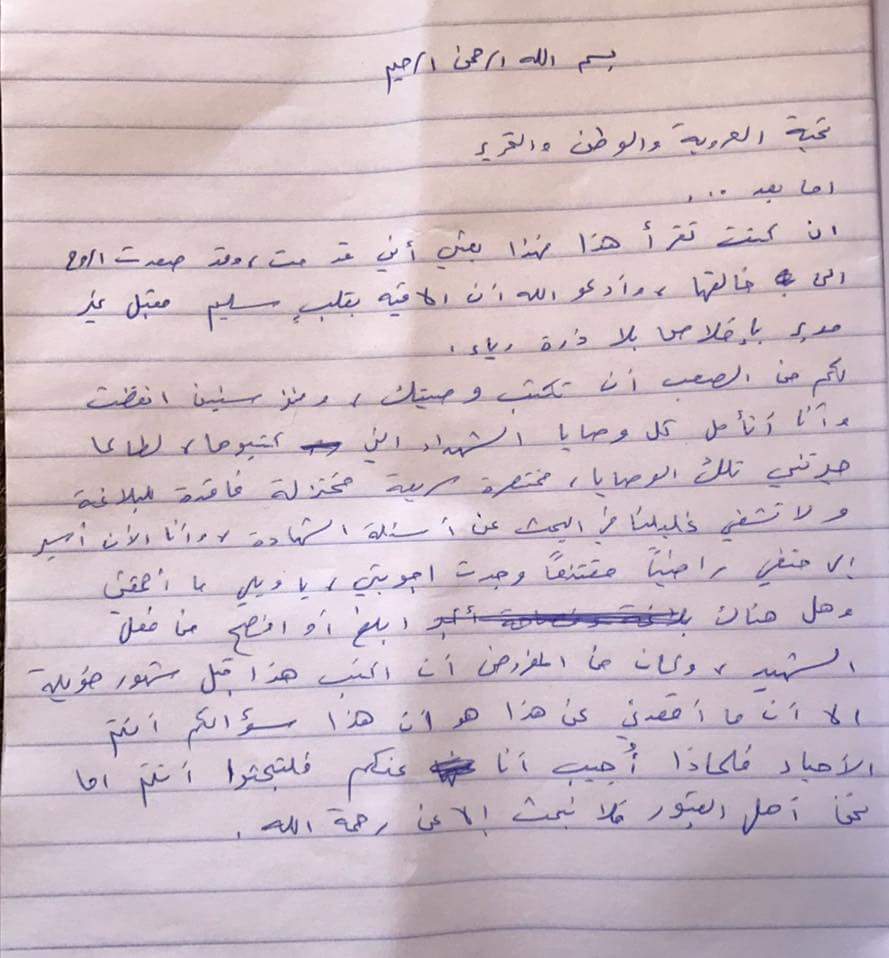 بسم الله الرحمن الرحيم
تحية العروبة والوطن والتحرير
اما بعد ...
ان كنت تقرأ هذا فهذا يعني أني قد مت، وقد صعدت الروح
الى خالقها، وأدعو الله أن الاقيه بقلبٍ سليم مقبل غير
مدبر بإخلاص بلا ذرة رياء.
لكم من الصعب أن تكتب وصيتك، ومنذ سنين انقضت
وأنا أتأمل كل وصايا الشهداء التي كتبوها، لطالما
حيرتني تلك الوصايا، مختصرة سريعة مختزلة فاقدة للبلاغة
ولا تشفي غليلنا في البحث عن أسئلة الشهادة، وأنا الأن أسير
إلى حتفي راضياً مقتنعاً وجدت اجوبتي، يا ويلي ما أحمقني
وهل هناك ابلغ أو افصح من فعل
الشهيد، وكان من المفروض أن اكتب هذا قبل شهور طويلة
الا أن ما أقعدني عن هذا هو أن هذا سؤالكم أنتم
الأحياء فلماذا أُجيب أنا عنكم فلتبحثوا أنتم اما
نحن أهل القبور فلا نبحث إلا عن رحمة الله.